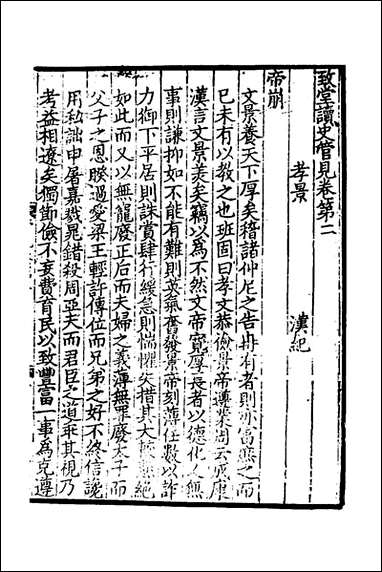 致堂讀史管見卷第二
孝景 漢紀
帝崩
文景養天下厚矣稽諸仲尼之告冉有者則亦富庶之而
已未有以教之也班固曰孝文恭儉景帝遵業周云成康
漢言文景美矣竊以為不然文帝寬厚長者以德化人無
事則謙抑如不能有難則英氣奮發景帝刻薄任數以詐
力御下平居則誅賞肆行緩急則惴懼失措其大致懸絕
如此而又以無寵廢正后而夫婦之義薄無罪廢太子而
父子之恩睽過愛梁王輕許傳位而兄弟之好不終信讒
用私詘申屠嘉戮晁錯殺周亞夫而君臣之道乖其視乃
考益相遼矣獨節儉不妄費育民以致豐富一事為克遵